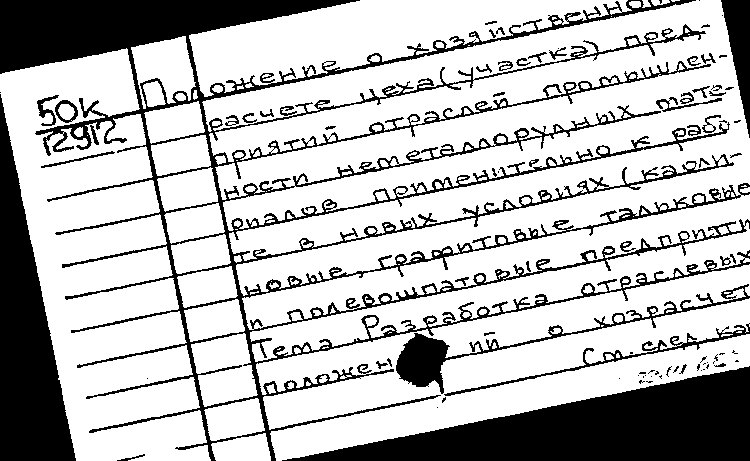 50к
12912
Положение о хозяйственном
расчете цеха (участка) пред-
приятий отраслей промышлен-
ности неметаллорудных мате-
риалов применительно к рабо-
те в новых условиях (каоли-
новые, графитовые, тальковые
и полевошпатовые предприяти
Тема. Разработка отраслевых
положен ий о хозрасчет
См. след. ка